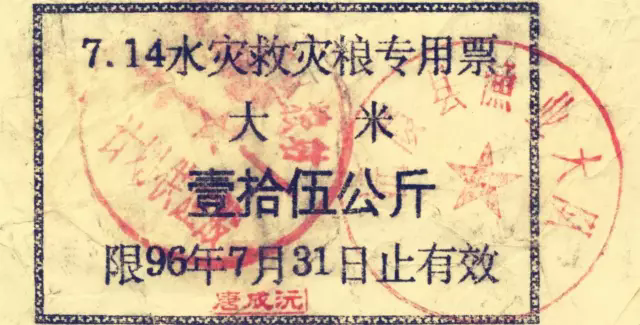 7.14水灾救灾粮专用票
大米
壹拾伍公斤
限96年7月31日止有效
唐成沅
县渔业大队